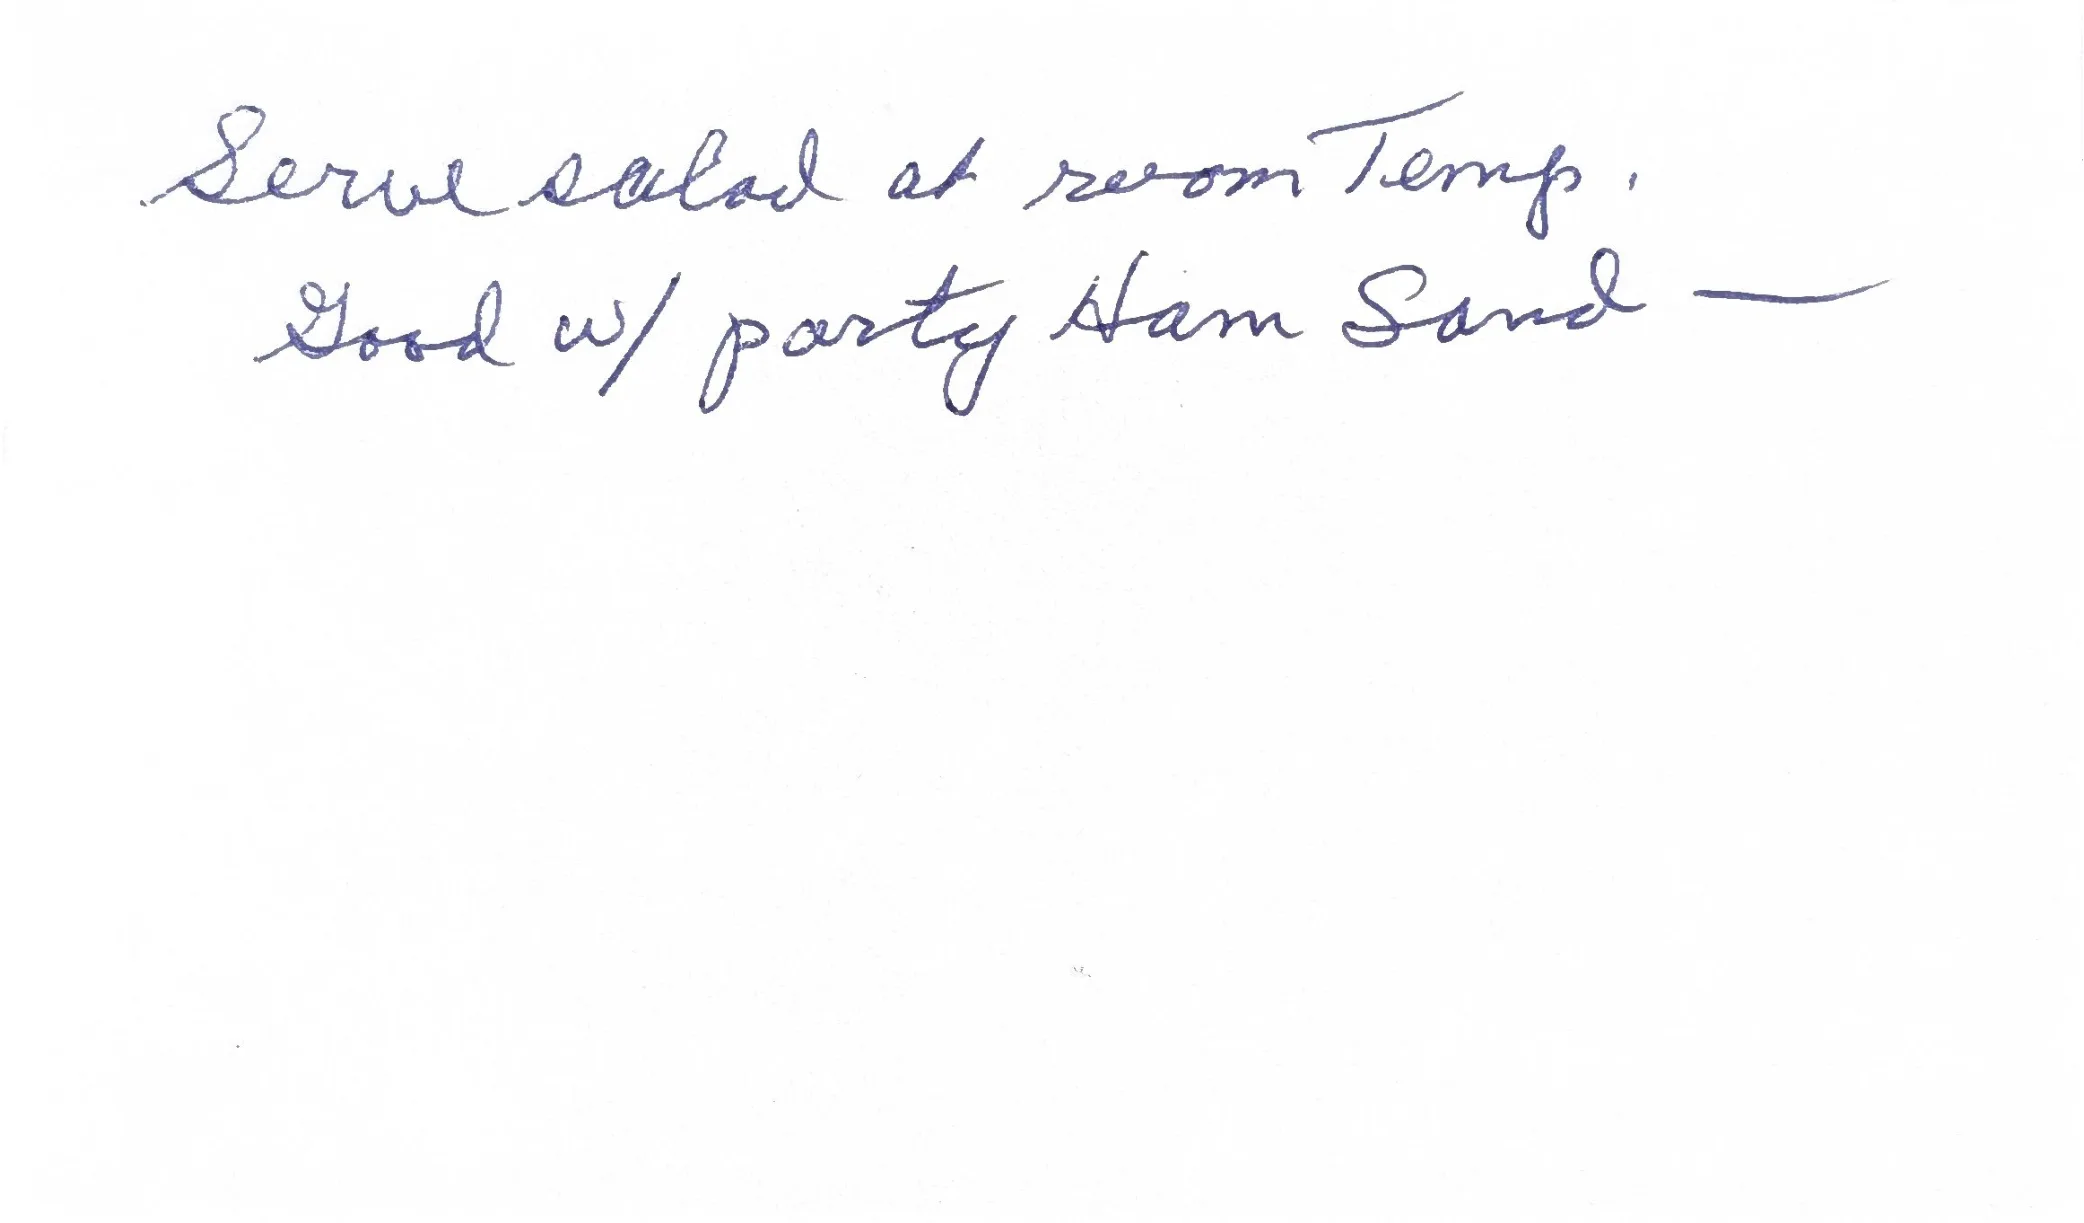 Serve salad at room Temp.
Good w/ party Ham Sand —